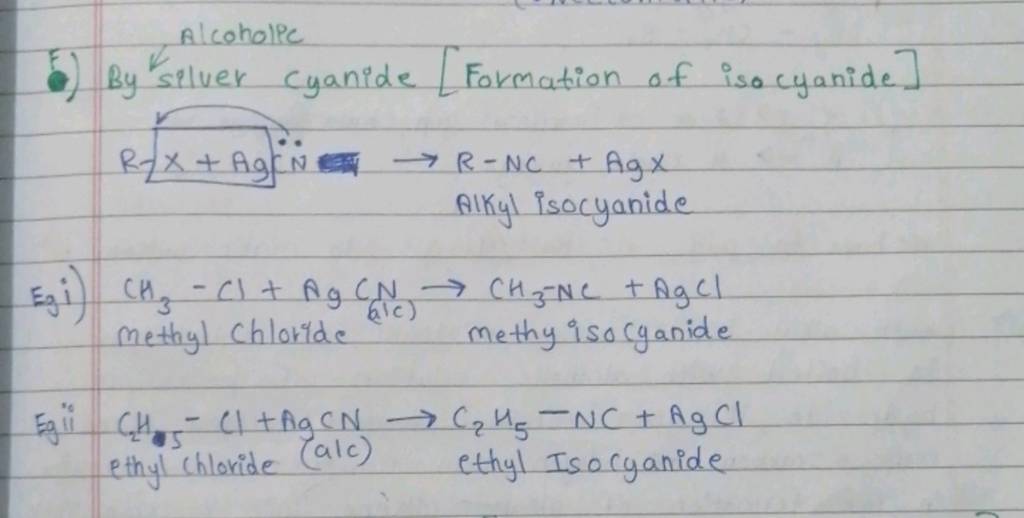 Alcoholic
F) By silver cyanide [Formation of isocyanide]
R-X + AgCN → R-NC + AgX
Alkyl isocyanide
Eg i) CH3 - Cl + AgCN (alc) → CH3-NC + AgCl
methyl chloride methy isocyanide
Eg ii C2H5 - Cl + AgCN (alc) → C2H5 - NC + AgCl
ethyl chloride ethyl Isocyanide